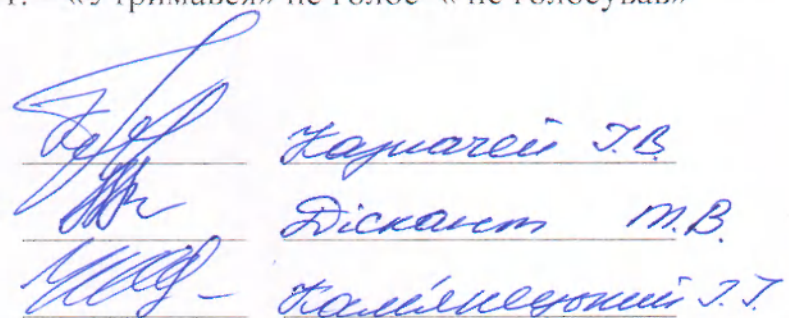 «Утримався» не голос « не голосував»
Казначей Г.В.
Діскант Т.В.
Кам'янецький Г.Г.